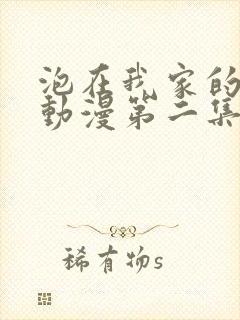 泡在我家的
動漫第二集
稀有物s